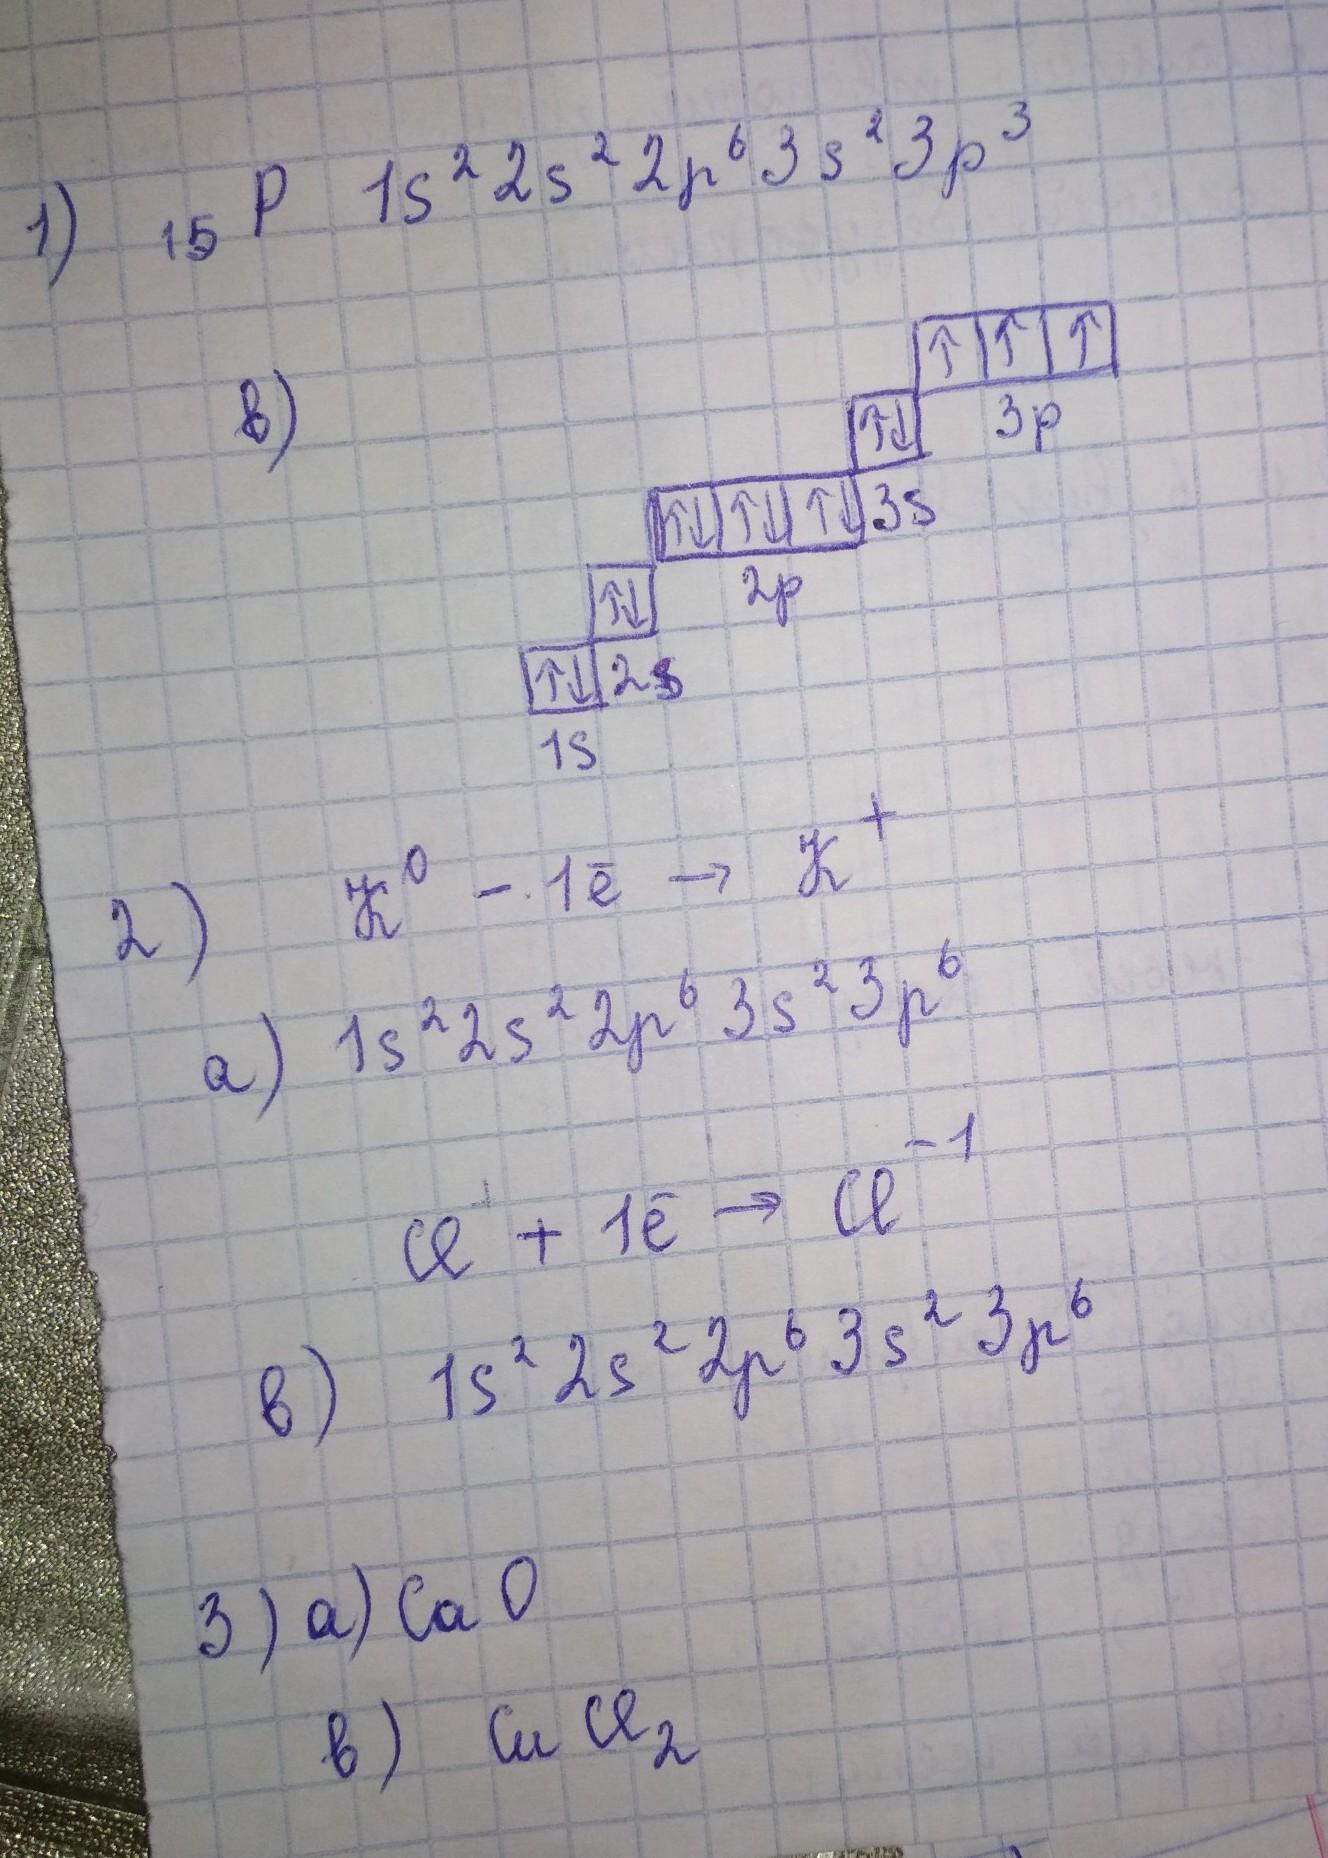 1) ₁₅P 1s²2s²2p⁶3s²3p³
в)
↑ ↑ ↑
↑↓ 3p
↑↓ ↑↓ ↑↓ 3s
↑↓ 2p
↑↓ 2s
1s
2) K⁰ - 1ē → K⁺
а) 1s²2s²2p⁶3s²3p⁶
Cl + 1ē → Cl⁻¹
в) 1s²2s²2p⁶3s²3p⁶
3) а) CaO
в) CuCl₂